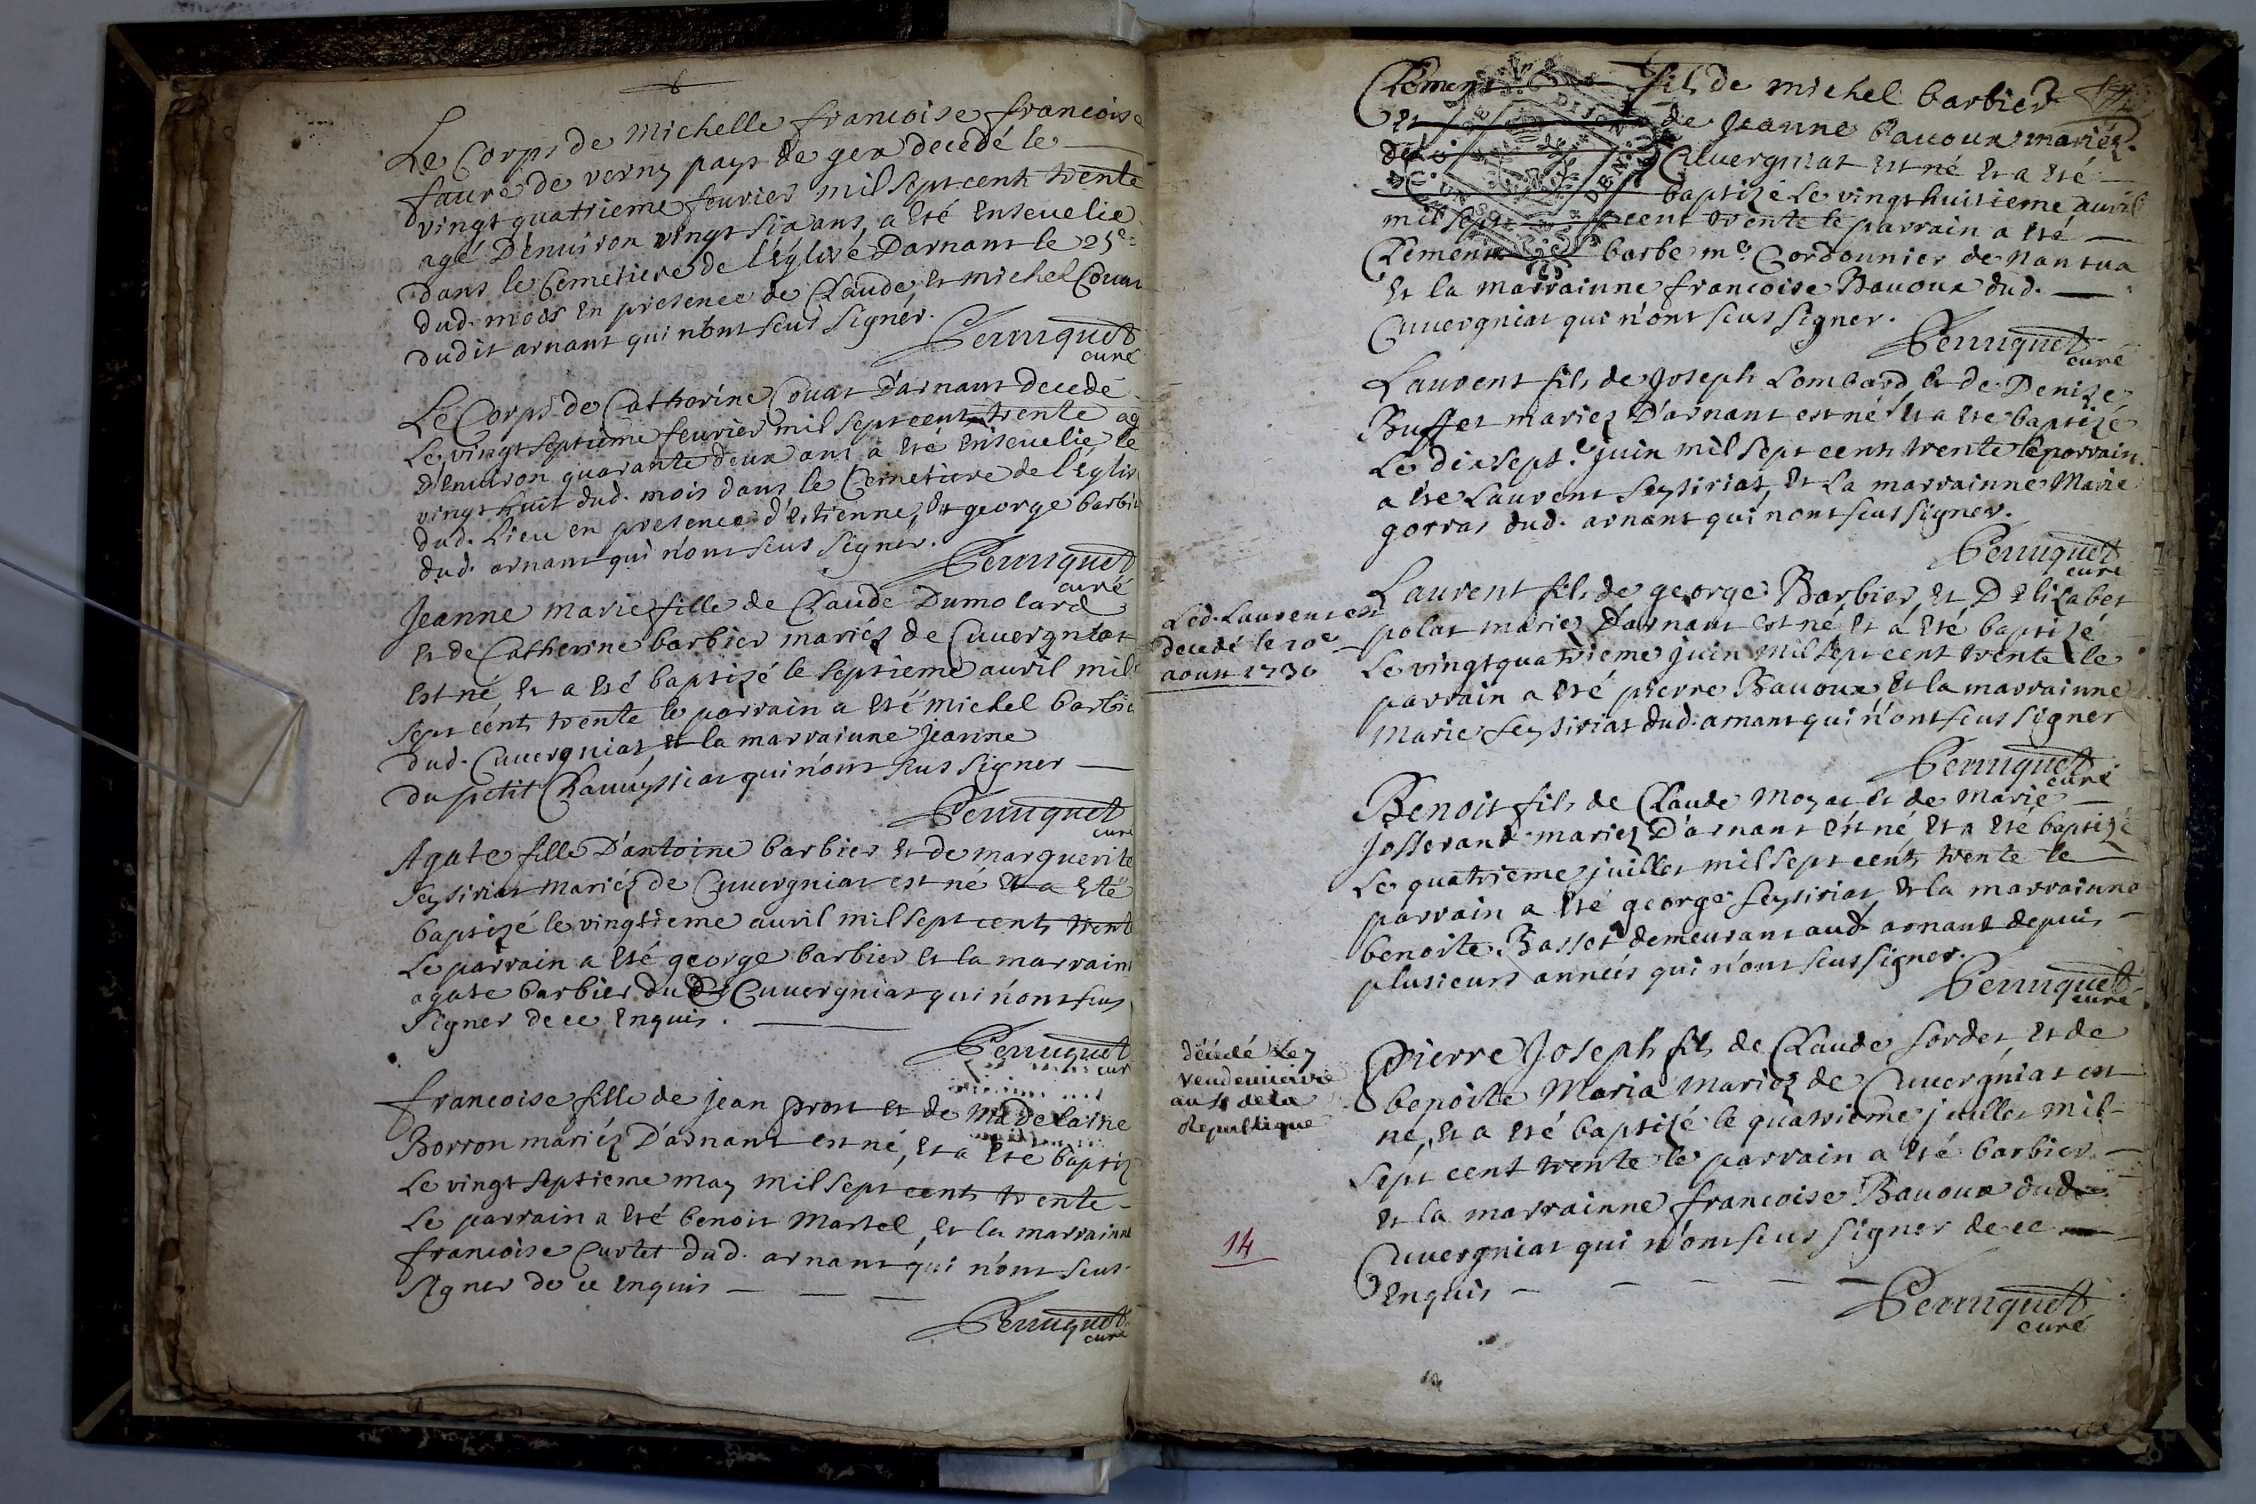 Le Corps de Michelle francoise francoise
faure de verny pays de gex decedé le
vingt quatrieme feurier mil sept cents trente
agé D'enuiron vingt six ans, a esté enseuelie
dans le Cemetiere de l'Eglise Darnant le 25e
dud. mois en presence de Claude, et michel Couat
dudit arnant qui n'ont seus signér.
Perruquet
curé
Le Corps de Catherine Couat d'arnant decedé
Le vingt septieme feurier mil sept cents trente agé
d'enuiron quarante deux ans a ete enseuelie le
vingt huit dud. mois dans le Cemetiere de l'Eglise
dud. Lieu en presence d'Estienne, et george barbier
dud. arnant qui n'ont seus signer.
Perruquet
curé
Jeanne marie fille de Claude Dumolard
et de Catherine barbier mariéz de Cuuergniat
est né et a esté baptizé le septieme auril mil
sept cents trente le parrain a esté michel barbier
dud. Cuuergniat et la marrainne jeanne
du petit Chauuyssiat qui n'ont seus signer
Perruquet
curé
Agate fille D'antoine barbier et de marguerite
Seysiriat mariéz de Cuuergniat est né et a esté
baptizé le vingtieme auril mil sept cents trente
Le parrain a esté george barbier et la marrainne
agate barbier dud Cuuergniat qui n'ont seus
signer de ce enquis.
Perruquet
curé
francoise fille de jean prost et de Madelaine
Borron mariéz D'arnant est né, et a esté baptizé
Le vingt septieme may mil sept cents trente
Le parrain a esté benoit Martel, et la marrainne
francoise Curtet dud. arnant qui n'ont seus
signer de ce enquis
Perruquet
curé
Clement fils de michel barbier
et de Jeanne Bauoux mariéz
de Cuuergniat est né et a esté
baptizé Le vingt huitieme auril
mil sept cent trente le parrain a esté
Clement barbe me Cordonnier de nantua
et la marrainne francoise Bauoux dud.
Cuuergniat qui n'ont seus signer.
Perruquet
curé
Laurent fils de Joseph Lombard, et de Denize
Buffet mariez D'arnant est né et a ete baptizé
Le dix sept. juin mil sept cents trente le parrain
a ete Laurent Seysiriat, et La marrainne Marie
gorras dud. arnant qui n'ont seus signer.
Perruquet
curé
Laurent fils de george Barbier, et D'elizabet
polat mariez D'arnant est né et a esté baptizé
Le vingt quatrieme juin mil sept cent trente le
parrain a esté pierre Bauoux et la marrainne
Marie Seysiriat dud. arnant qui n'ont seus signer
Perruquet
curé
Led. Laurent est
decedé le 20e
aoust 1730
Benoit fils de Claude Moyat et de Marie
Josserand mariez D'arnant est né, et a esté baptizé
Le quatrieme juillet mil sept cents trente le
parrain a esté george Seysiriat, et la marrainne
benoite Basset demeurant aud. arnant depuis
plusieurs années qui n'ont seus signer.
Perruquet
curé
décédé Le 7
vendemiaire
an 4 de la
Republique
Pierre Joseph fils de Claude Sordet et de
benoite Maria mariez de Cuuergniat est
né, et a esté baptizé le quatrieme juillet mil
sept cent trente le parrain a esté barbier
et la marrainne francoise Bauoux dud.
Cuuergniat qui n'ont seus signer de ce
enquis
Perruquet
curé
14